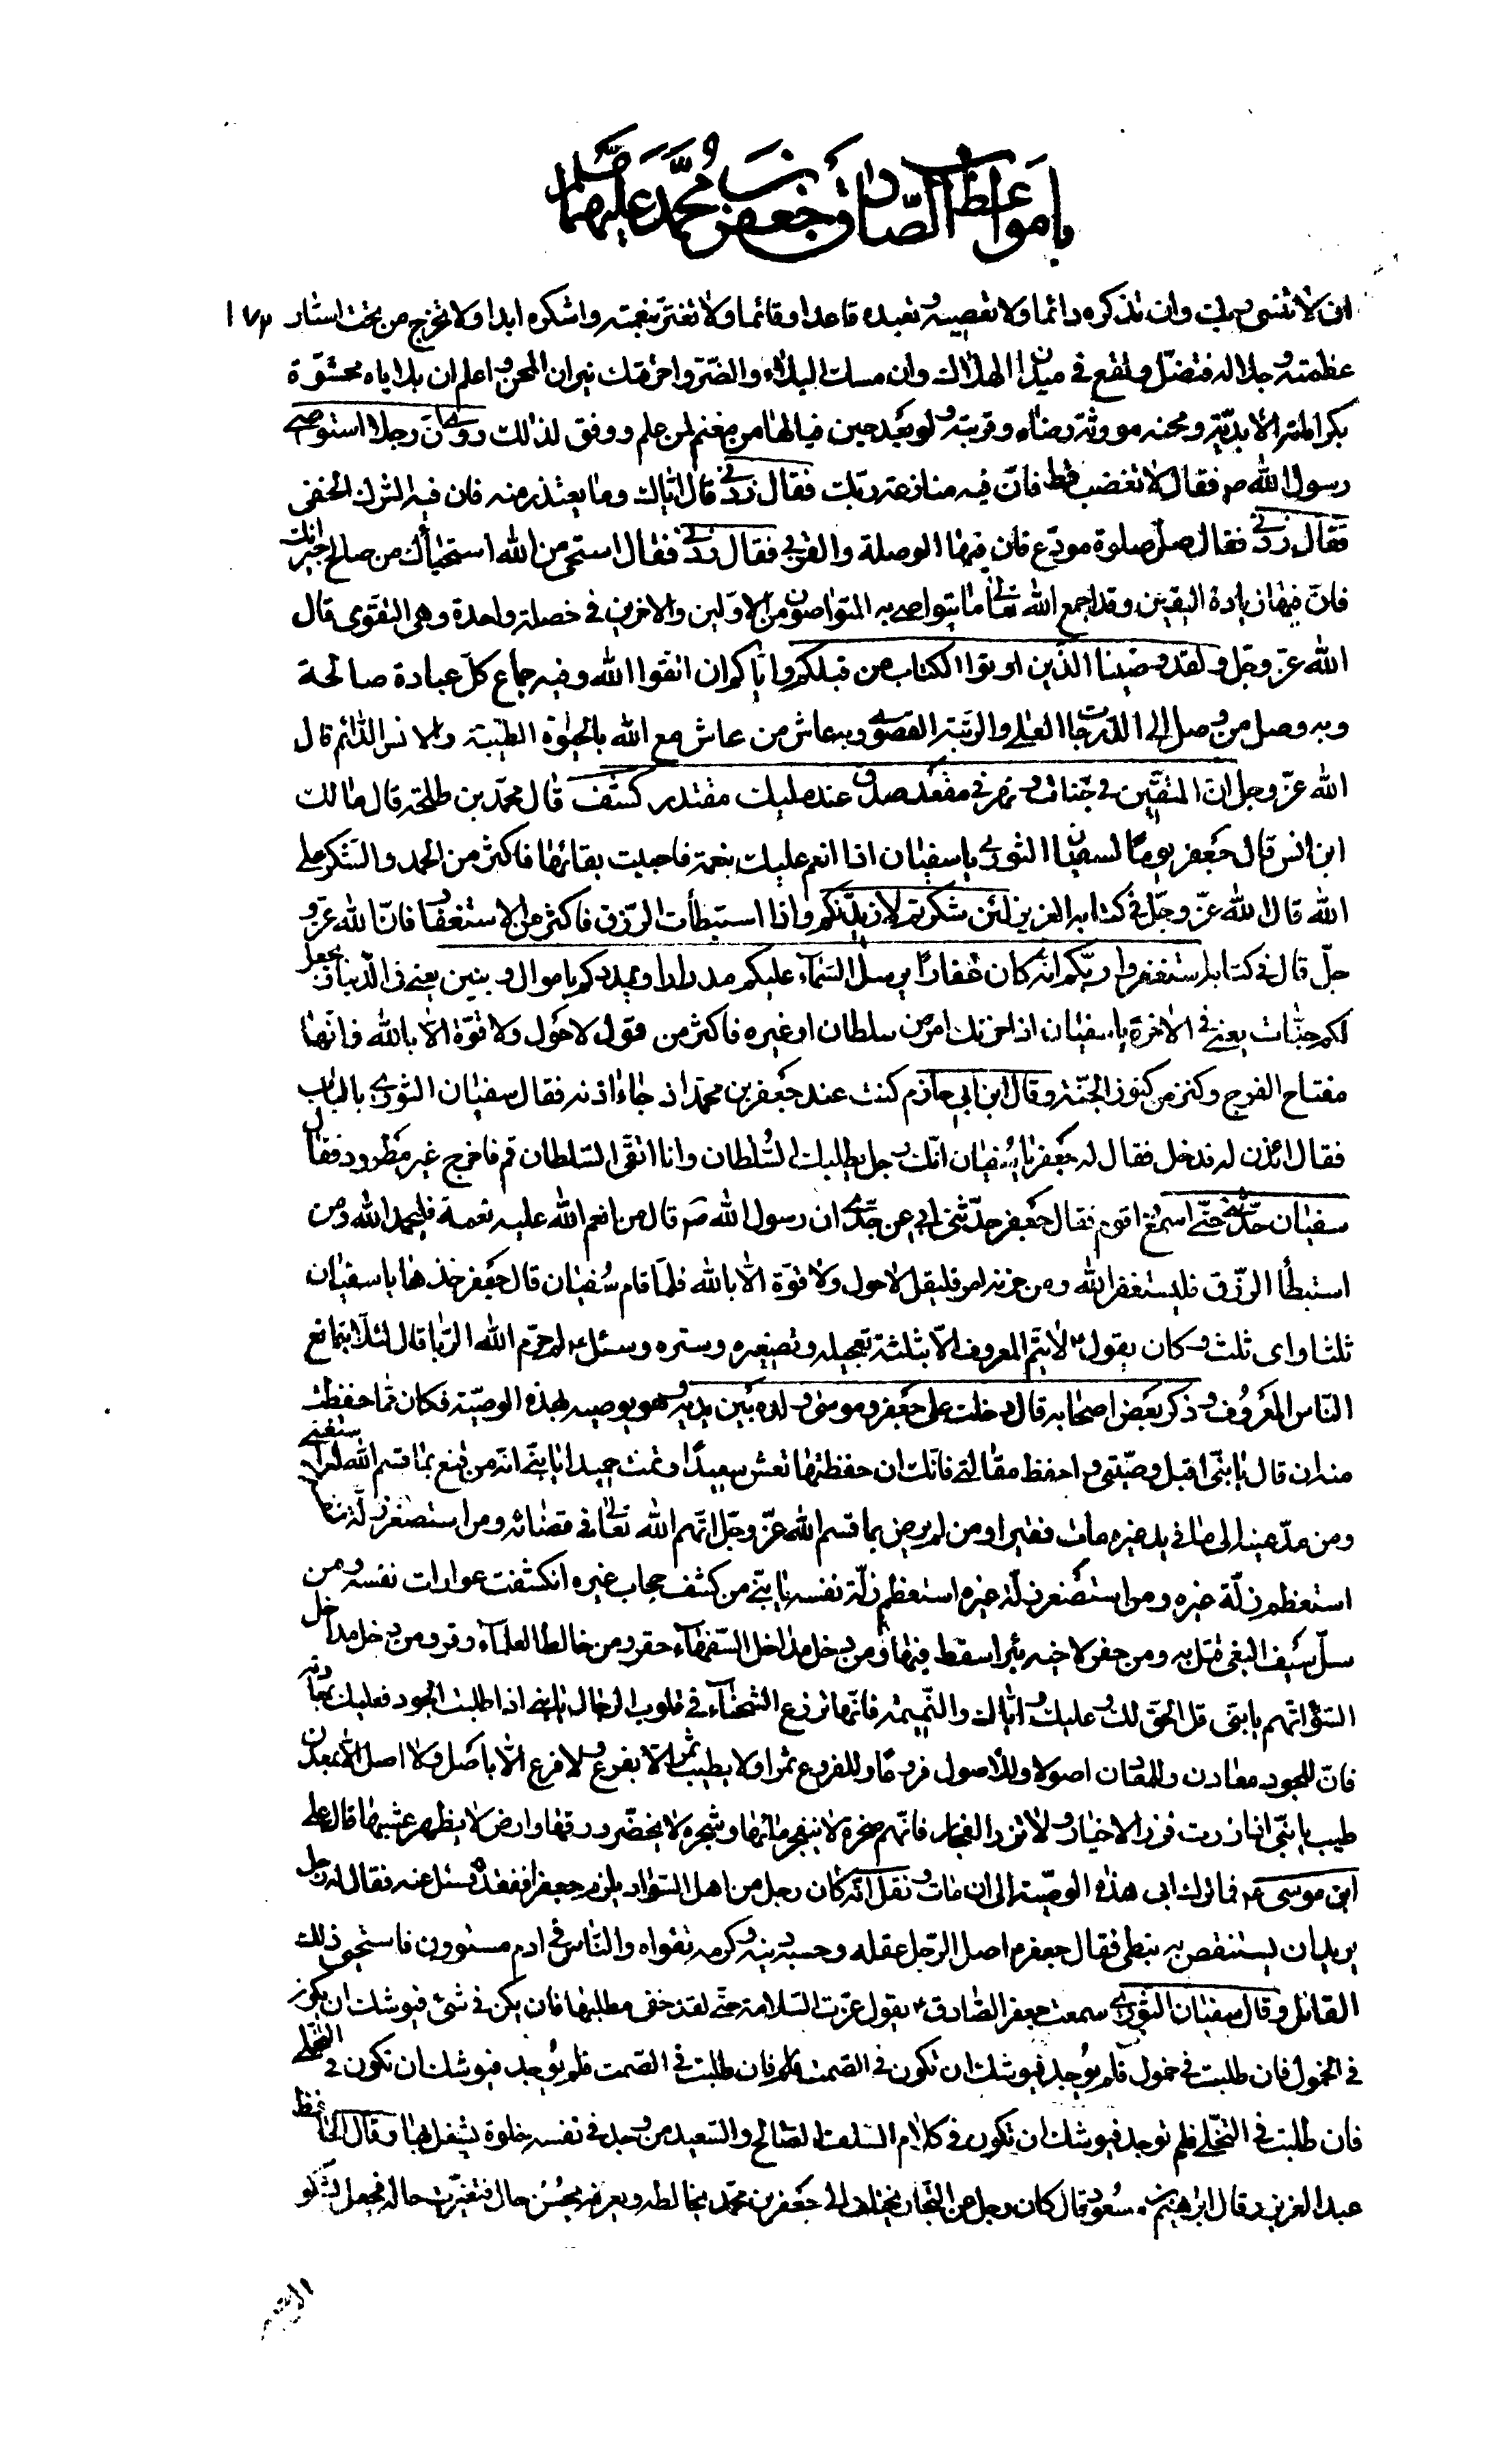 باب مواعظ الصادق جعفر بن محمد صلوات الله عليهما
١٧٣
ان لا تنسى ربك وان تذكره دائما ولا تعصيه وتعبده قاعدا وقائما ولا تغتر بنعمته واشكره ابدا ولا تخرج من تحت استار
عظمته وجلاله فتضل وتقع في ميدان الهلاك وان مسك البلاء والضر واحرقتك نيران المحن واعلم ان بلاياه محشوّة
بكراماته الابديّة ومحنه مورثة رضاه وقربته ولو بعد حين فيا لها من مغنم لمن علم ووفق لذلك روى ان رجلا استوصى
رسول الله ص فقال لا تغضب قط فانّ فيه منازعة ربك فقال زدني قال اياك وما يعتذر منه فان فيه الشرك الخفي
فقال زدني فقال صل صلوة مودّع فان فيها الوصلة والقربى فقال زدني فقال استحى من الله استحياءك من صالح جيرانك
فانّ فيها زيادة اليقين وقد اجمع الله تعالى ما يتواصى به المتواصون من الاوّلين والاخرين في خصلة واحدة وهي التقوى قال
الله عزّ وجلّ ولقد وصّينا الّذين اوتوا الكتاب من قبلكم وايّاكم ان اتقوا الله وفيه جماع كلّ عبادة صالحة
وبه وصل من وصل الى الدرجات العلى والرتبة القصوى وبه عاش من عاش مع الله بالحيوة الطيّبة والانس الدائم قال
الله عزّ وجلّ انّ المتقين في جنّات ونهر في مقعد صدق عند مليك مقتدر كشف قال محمّد بن طلحة قال مالك
ابن انس قال جعفر يوما لسفيان الثورى يا سفيان اذا انعم الله عليك بنعمة فاحببت بقائها فاكثر من الحمد والشكر على
الله قال الله عزّ وجلّ في كتابه العزيز لئن شكرتم لازيدنّكم واذا استبطأت الرّزق فاكثر من الاستغفار فانّ الله عزّ و
جلّ قال في كتابه استغفروا ربّكم انّه كان غفارا يرسل السّماء عليكم مدرارا ويمددكم باموال وبنين يعنى في الدّنيا ويجعل
لكم جنّات يعنى في الاخرة يا سفيان اذا حزنك امر من سلطان او غيره فاكثر من قول لا حول ولا قوّة الا بالله فانّها
مفتاح الفرج وكنز من كنوز الجنّة وقال ابن ابي حازم كنت عند جعفر بن محمد اذ جاء آذنه فقال سفيان الثورى بالباب
فقال ائذن له فدخل فقال له جعفر يا سفيان انّك رجل يطلبك السّلطان وانا اتقى السّلطان قم فاخرج غير مطرود فقال
سفيان حدّثني حتّى اسمع واقوم فقال جعفر حدّثني ابي عن جدّي ان رسول الله ص قال من انعم الله عليه نعمة فليحمد الله ومن
استبطأ الرّزق فليستغفر الله ومن حزنه امر فليقل لا حول ولا قوّة الا بالله فلمّا قام سفيان قال جعفر خذها يا سفيان
ثلثا واى ثلث وكان يقول ع لا يتمّ المعروف الّا بثلثة تعجيله وتصغيره وستره وسئل ع لم حرّم الله الرّبا قال لئلّا يتمانع
النّاس المعروف وذكر بعض اصحابه قال دخلت على جعفر وموسى ولده بين يديه وهو يوصيه بهذه الوصيّة فكان ممّا حفظت
منه ان قال يا بنيّ اقبل وصيّتي واحفظ مقالتي فانّك ان حفظتها تعش سعيدا وتمت حميدا يا بنيّ انه من قنع بما قسم الله له استغنى
ومن مدّ عينه الى ما في يد غيره مات فقيرا ومن لم يرض بما قسم الله عزّ وجلّ اتّهم الله تعالى في قضائه ومن استصغر زلّة نفسه
استعظم زلّة غيره ومن استصغر زلّة غيره استعظم زلّة نفسه يا بنيّ من كشف حجاب غيره انكشفت عورات نفسه ومن
سلّ سيف البغى قتل به ومن حفر لاخيه بئرا سقط فيها ومن دخل مداخل السّفهاء حقر ومن خالط العلماء وقر ومن دخل مداخل
السّوء اتّهم يا بنيّ قل الحق لك وعليك وايّاك والنّميمة فانّها تزرع الشّحناء في قلوب الرّجال يا بنيّ اذا طلبت الجود فعليك بمعادنه
فانّ للجود معادن وللمعادن اصولا وللاصول فروعا وللفروع ثمرا ولا يطيب ثمر الّا بفرع ولا فرع الّا باصل ولا اصل الّا بمعدن
طيب يا بنيّ اذا زرت فزر الاخيار ولا تزر الفجار فانّهم صخرة لا ينفجر مائها وشجرة لا يخضرّ ورقها وارض لا يظهر عشبها قال على
ابن موسى ع فما ترك ابى هذه الوصيّة الى ان مات ونقل انّه كان رجل من اهل السّواد يلزم جعفرا ففقده فسئل عنه فقال له رجل
يريد ان يستنقص به نبطى فقال جعفر ع اصل الرّجل عقله وحسبه دينه وكرمه تقواه والنّاس في ادم مستوون فاستحيى ذلك
القائل وقال سفيان الثّورى سمعت جعفر الصّادق ع يقول عزّت السّلامة حتّى لقد خفى مطلبها فان يكن في شئ فيوشك ان يكون
في الخمول فان طلبت في خمول فلم يوجد فيوشك ان تكون في الصّمت فان طلبت في الصّمت فلم يوجد فيوشك ان تكون في التّخلّي
فان طلبت في التّخلّي فلم توجد فيوشك ان تكون في كلام السّلف الصّالح والسّعيد من وجد في نفسه خلوة يشغل بها وقال الحافظ
عبد العزيز وقال ابرهيم بن مسعود قال كان رجل من التّجار يختلف الى جعفر بن محمّد يخالطه ويعرفه بحسن حال فتغيّرت حاله فجعل يشكو